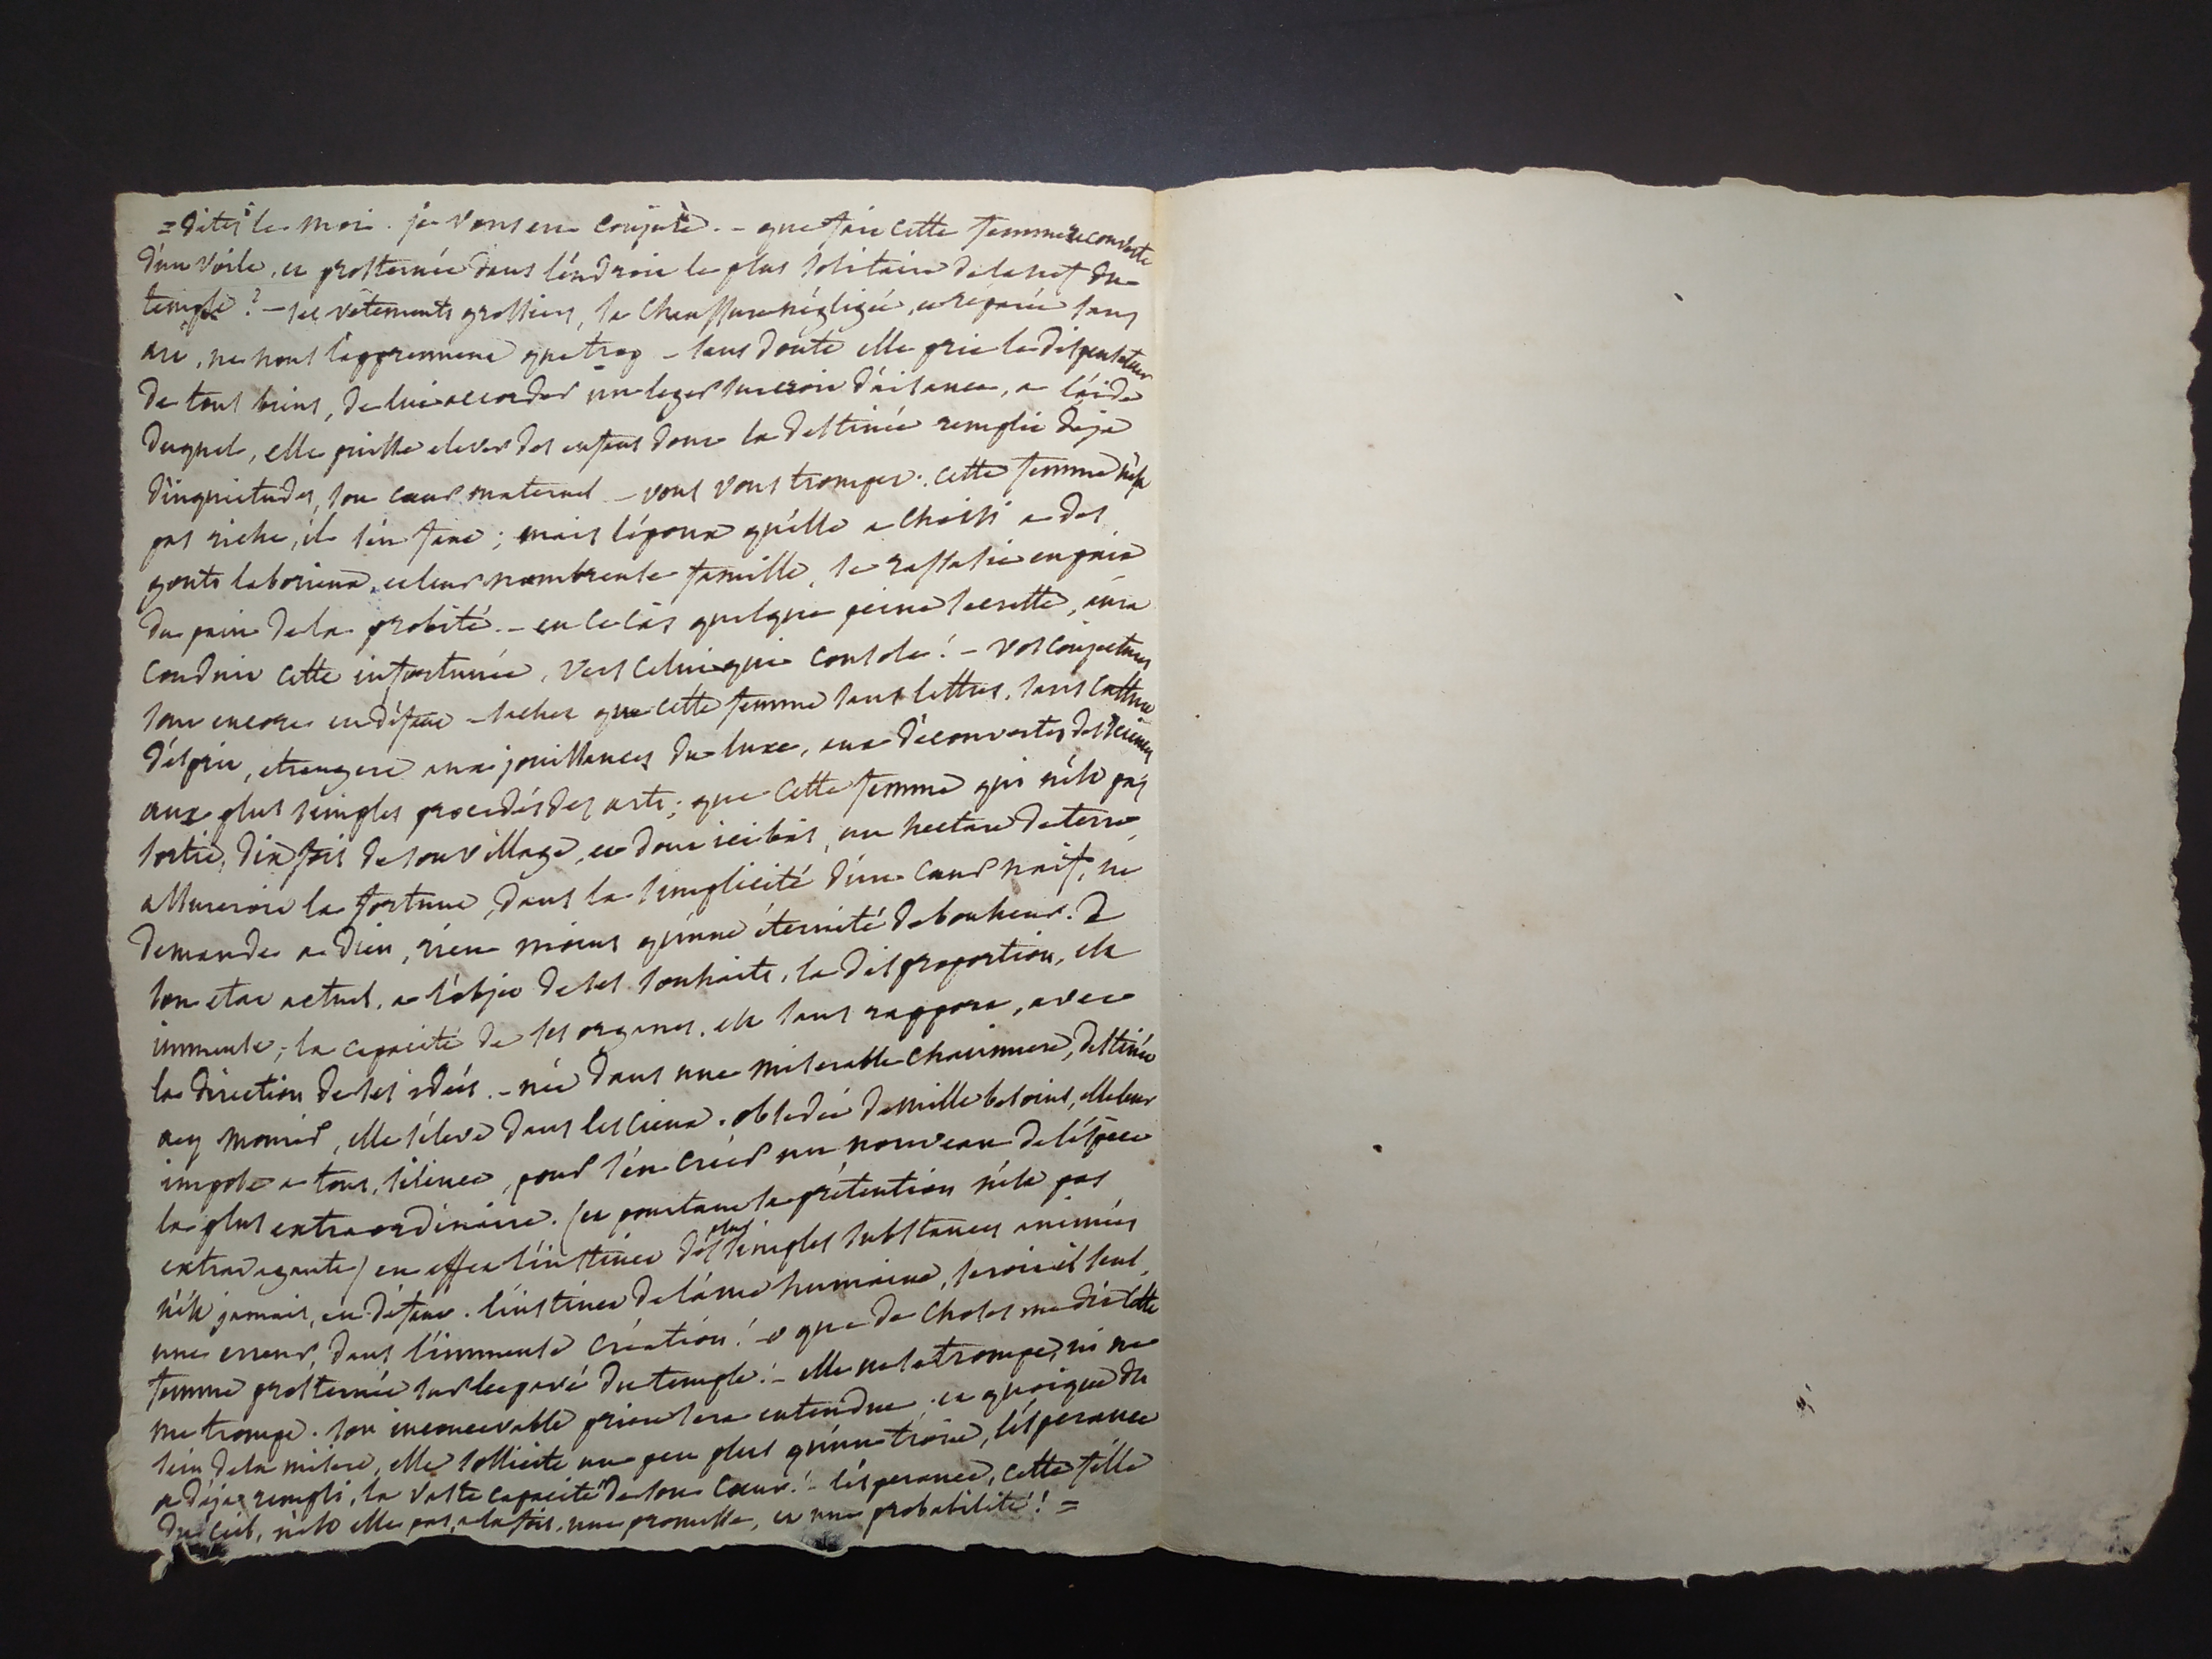 = dites le moi. je vous en conjure. - que fait cette femme recouverte
d'un voile, et prosternée dans l'endroit le plus solitaire de la nef du
temple? - ses vêtements grossiers, sa chaussure négligée, et réparée sans
art, ne nous l'apprennent que trop - sans doute elle prie le dispensateur
de tous biens, de lui accorder un leger surcroit d'aisance, a l'aide
duquel, elle puisse elever des enfans dont la destinée remplit deja
d'inquietudes, son cœur maternel - vous vous trompez. cette femme n'est
pas riche, il s'en faut; mais l'epoux qu'elle a choisi a des
gouts laborieux, et leur nombreuse famille, se rassasie en paix
du pain de la probité. - en ce cas quelque peine secrette, aura
conduit cette infortunée, vers celui qui console! - vos conjectures
sont encore en défaut - sachez que cette femme sans lettres, sans culture
d'esprit, etrangere aux jouissances du luxe, aux découvertes des sciences
aux plus simples procedés des arts; que cette femme qui n'est pas
sortie, dix fois de son village, et dont ici bas, un hectare de terre,
assureroit la fortune, dans la simplicité d'un cœur naif, ne
demande a dieu, rien moins qu'une éternité de bonheur. de
son etat actuel, a l'objet de ses souhaits, la disproportion, est
immense; la capacité de ses organes, est sans rapport, avec
la direction de ses idées. - née dans une miserable chaumiere, destinée
a y mourir, elle s'éleve dans les cieux. obsedée de mille besoins, elle leur
impose a tous, silence, pour s'en créer un nouveau de l'éspece
la plus extraordinaire. (et pourtant sa prétention n'est pas
extravagante) en effet l'instinct des plus simples substances animées
n'est jamais, en défaut. l'instinct de l'ame humaine, seroit il seul,
une erreur, dans l'immense création! - o que de choses me dit cette
femme prosternée sur le pavé du temple! - elle ne se trompe, ni ne
me trompe. son inconcevable priere sera entendue. et quoique du
sein de la misere, elle sollicite un peu plus qu'un trône, l'éspérance
a déja rempli, la vaste capacité de son cœur! - l'ésperance, cette fille
du ciel, n'est elle pas, a la fois, une promesse, et une probabilité! =